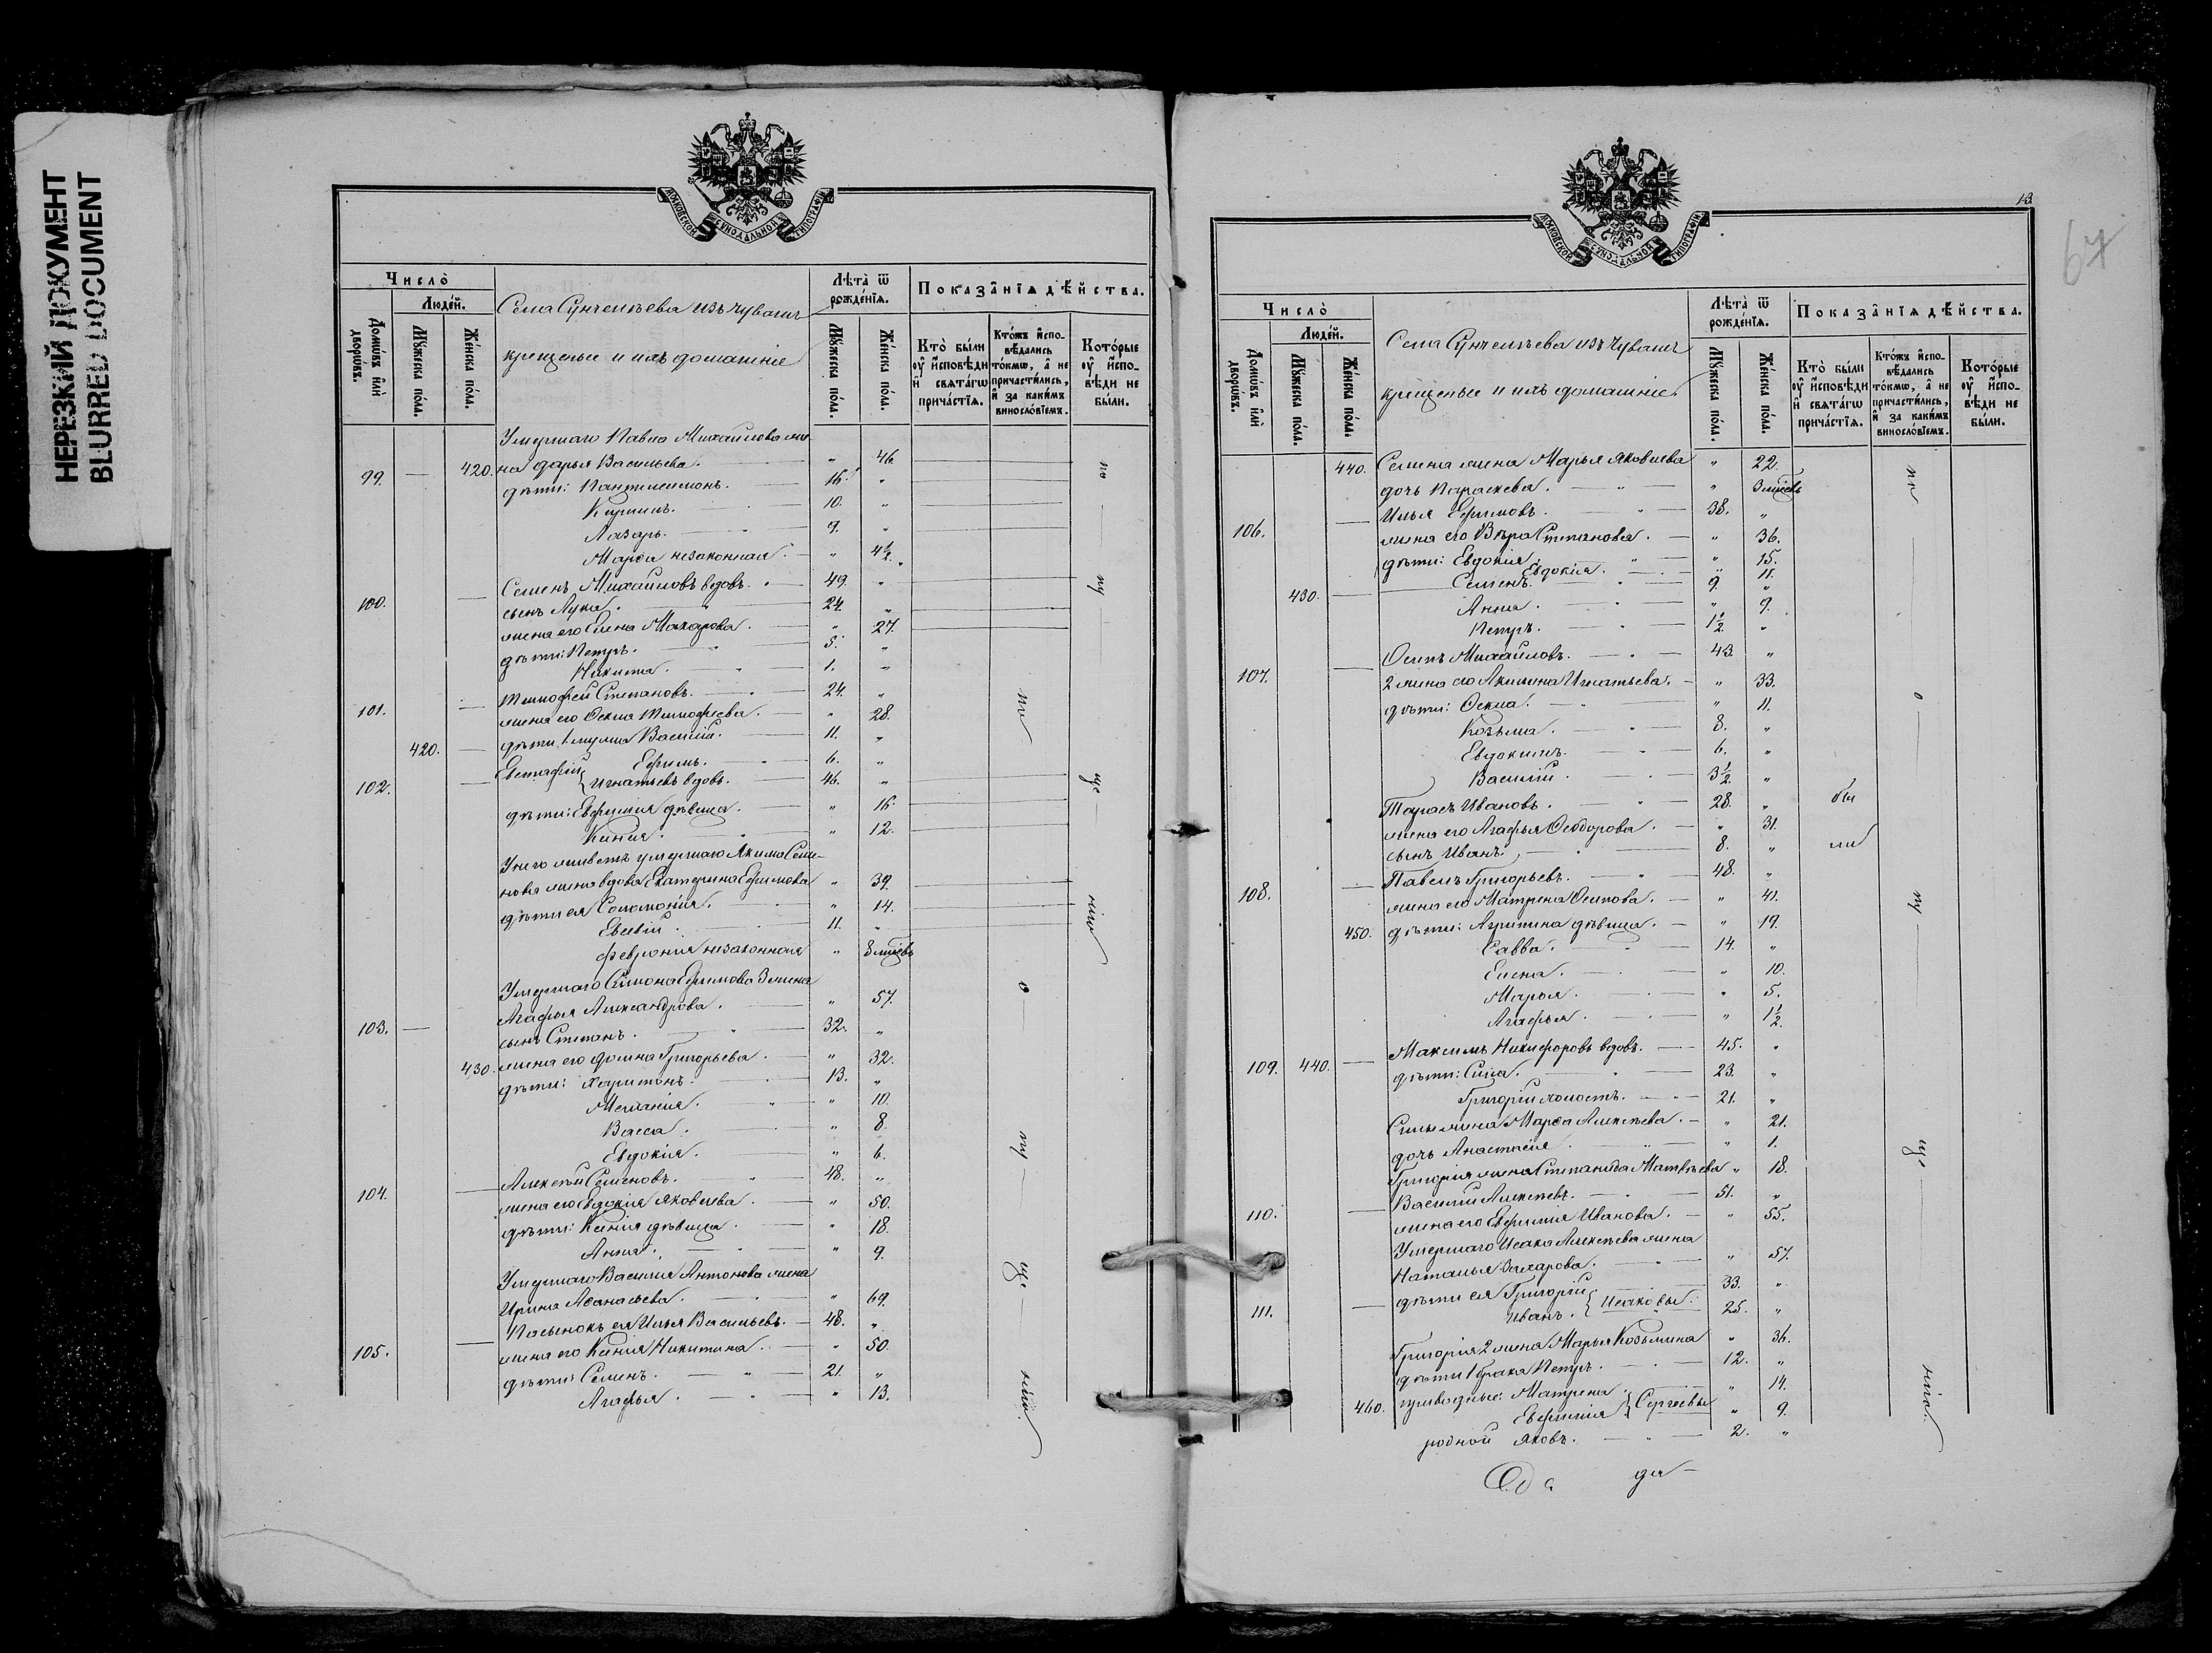 НЕРЕЗКИЙ ДОКУМЕНТ
BLURRED DOCUMENT
МОСКОВСКОЙ СѴНОДАЛЬНОЙ ТИПОГРАФІИ
Число̀
Люде́й.
Домѡ́въ и҆лѝ дворѡ́въ.
Мꙋ́жеска по́ла.
Же́нска по́ла.
Села Сунчелѣева изъ чувашъ
крещеные и ихъ домашніе
Лѣ́та ѿ рожде́нїѧ.
Мꙋ́жеска по́ла.
Же́нска по́ла.
Показа̑нїѧ дѣ́йства.
Кто̀ бы́ли ᲂу҆ и҆сповѣ́ди и҆ свѧта́гѡ прича́стїѧ.
Кто́жъ и҆сповѣ́дались то́кмѡ, а҆ не причасти́лись, и҆ за каки́мъ виносло́вїемъ.
Кото́рые ᲂу҆ и҆сповѣ́ди не бы́ли.
Умершаго Павла Михайлова же-
99. — 420. на Дарья Васильева. " 46.
дѣти: Пантелеимонъ. 16. "
Кириллъ. 10. "
Лазарь. 9. "
Марѳа незаконная. " 4½.
100. — Семенъ Михайловъ вдовъ. 49. "
сынъ Лука. 24. "
жена его Елена Макарова. " 27.
дѣти: Петръ. 5. "
Никита. 1. "
101. — Тимофей Степановъ. 24. "
жена его Ѳекла Тимофеева. " 28.
420. — дѣти 1 мужа Василій. 11. "
Ефимъ. 6. "
102. — Евстафій Игнатьевъ вдовъ. 46. "
дѣти: Евфимія дѣвица. " 16.
Ксенія. " 12.
У него живетъ умершаго Якима Семе-
нова жена вдова Екатерина Ефимова " 39.
дѣти ея Соломонія. " 14.
Евсевій. 11. "
Феврония незаконная " 8 мѣсѧцъ
Умершаго Симона Ефимова 3 жена
103. — Агафья Александрова. " 57.
сынъ Степанъ. 32. "
430. жена его Домна Григорьева. " 32.
дѣти: Харитонъ. 13. "
Меланія. " 10.
Васса. " 8.
Евдокія. " 6.
104. — Алексѣй Семеновъ. 48. "
жена его Евдокія Яковлева. " 50.
дѣти: Ксенія дѣвица. " 18.
Анна. " 9.
Умершаго Василия Антонова жена
Ирина Аѳанасьева. " 69.
105. — Пасынокъ ея Илья Васильевъ. 48. "
жена его Ксенія Никитина. " 50.
дѣти: Семенъ. 21. "
Агафья. " 13.
по
лу
че
нію
по
ну
ще
нію.
МОСКОВСКОЙ СѴНОДАЛЬНОЙ ТИПОГРАФІИ
13
67
Число̀
Люде́й.
Домѡ́въ и҆лѝ дворѡ́въ.
Мꙋ́жеска по́ла.
Же́нска по́ла.
Села Сунчелѣева изъ чувашъ
крещеные и ихъ домашніе
Лѣ́та ѿ рожде́нїѧ.
Мꙋ́жеска по́ла.
Же́нска по́ла.
Показа̑нїѧ дѣ́йства.
Кто̀ бы́ли ᲂу҆ и҆сповѣ́ди и҆ свѧта́гѡ прича́стїѧ.
Кто́жъ и҆сповѣ́дались то́кмѡ, а҆ не причасти́лись, и҆ за каки́мъ винослов́їемъ.
Кото́рые ᲂу҆ и҆сповѣ́ди не бы́ли.
440. Семена жена Марья Яковлева " 22.
дочь Параскева. " 3 мѣсѧцъ
106. — Илья Ефимовъ. 38. "
жена его Вѣра Степанова. " 36.
дѣти: Евдокія. " 15.
Евдокія. " 11.
430. — Семенъ. 9. "
Анна. " 9.
Петръ. 1½ "
107. — Осипъ Михайловъ. 43. "
2 жена его Акилина Игнатьева. " 33.
дѣти: Ѳекла. " 11.
Козьма. 8. "
Евдокимъ. 6. "
Василій. 3½ "
Тарасъ Ивановъ. 28. " бы
жена его Агафья Ѳеодорова. " 31.
сынъ Иванъ. 8. " ли
108. — Павелъ Григорьевъ. 48. "
жена его Матрена Осипова. " 41.
450. дѣти: Акилина дѣвица. " 19.
Савва. 14. "
Елена. " 10.
Марья. " 5.
Агафья. " 1½.
109. 440. — Максимъ Никифоровъ вдовъ. 45. "
дѣти: Сила. 23. "
Григорій холостъ. 21. "
Силы жена Марѳа Алексѣева. " 21.
дочь Анастасія " 1.
Григорія жена Степанида Матвѣева " 18.
110. — Василій Алексѣевъ. 51. "
жена его Евфимія Иванова. " 55.
Умершаго Исака Алексѣева жена
Наталья Захарова. " 57.
111. — дѣти ея Григорій 33. "
Иванъ. Исаковы. 25. "
Григорія 2 жена Марья Козьмина " 36.
дѣти 1 брака Петръ. 12. "
460. приводные: Матрена. " 14.
Евфимія Сергѣевы " 9.
родной Яковъ. 2. "
по
о
пу
ще
нію.